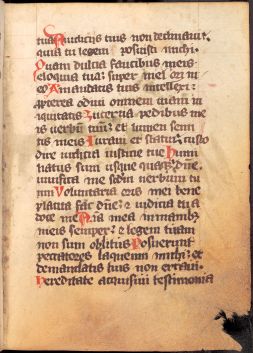 tua A iudiciis tuis non declinavi:
quia tu legem posuisti michi.
Quam dulcia faucibus meis
eloquia tua: super mel ori m
eo A mandatis tuis intellexi:
propterea odivi omnem viam in
iquitatis Lucerna pedibus me
is verbū tuū: et lumen semi
tis meis Iuravi et statui: custo
dire iudicia iusticie tue Humi
liatus sum usque quaq: dñe.
vivifica me sedm verbum tu
um Voluntaria oris mei bene
placita fac dñe: et iudicia tua
doce me Aīa mea in manib3
meis semper: et legem tuam
non sum oblitus Posuerunt
peccatores laqueum michi: et
de mandatis tuis non erravi.
Hereditate acquisivi testimonia